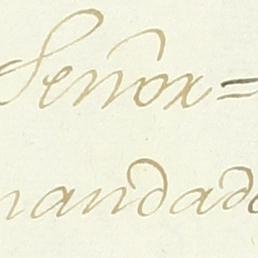 Señor =
mandado